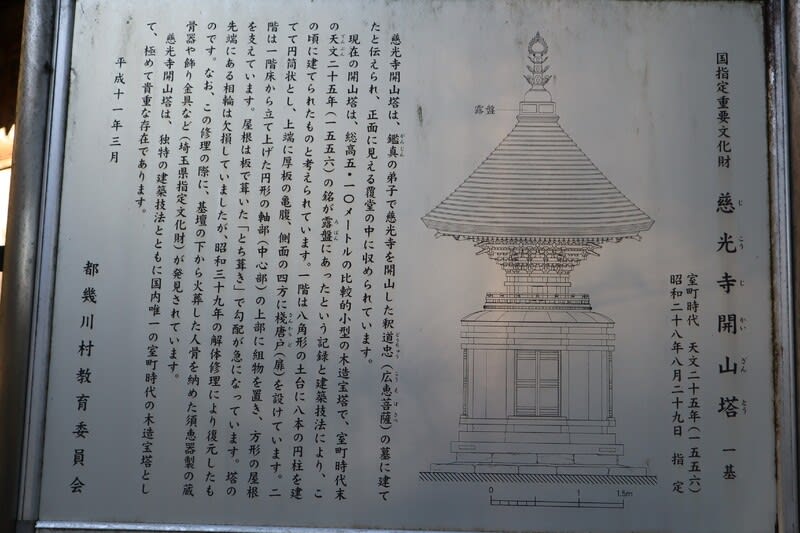 国指定重要文化財
慈光寺開山塔 一基
じこうじかいざんとう
室町時代 天文二十五年(一五五六)
昭和二十八年八月二十九日 指定
露盤
0 1 1.5m
慈光寺開山塔は、鑑真の弟子で慈光寺を開山した釈道忠(広恵菩薩)の墓に建て
たと伝えられ、正面に見える覆堂の中に収められています。
現在の開山塔は、総高五・一〇メートルの比較的小型の木造宝塔で、室町時代末
の天文二十五年(一五五六)の銘が露盤にあったという記録と建築技法により、こ
の頃に建てられたものと考えられています。一階は八角形の土台に八本の円柱を建
てて円筒状とし、上端に厚板の亀腹、側面の四方に桟唐戸(扉)を設けています。二
階は一階床から立て上げた円形の軸部(中心部)の上部に組物を置き、方形の屋根
を支えています。屋根は板で葺いた「とち葺き」で勾配が急になっています。塔の
先端にある相輪は欠損していましたが、昭和三十九年の解体修理により復元したも
のです。なお、この修理の際に、基壇の下から火葬した人骨を納めた須恵器製の蔵
骨器や飾り金具など(埼玉県指定文化財)が発見されています。
慈光寺開山塔は、独特の建築技法とともに国内唯一の室町時代の木造宝塔とし
て、極めて貴重な存在であります。
平成十一年三月
都幾川村教育委員会